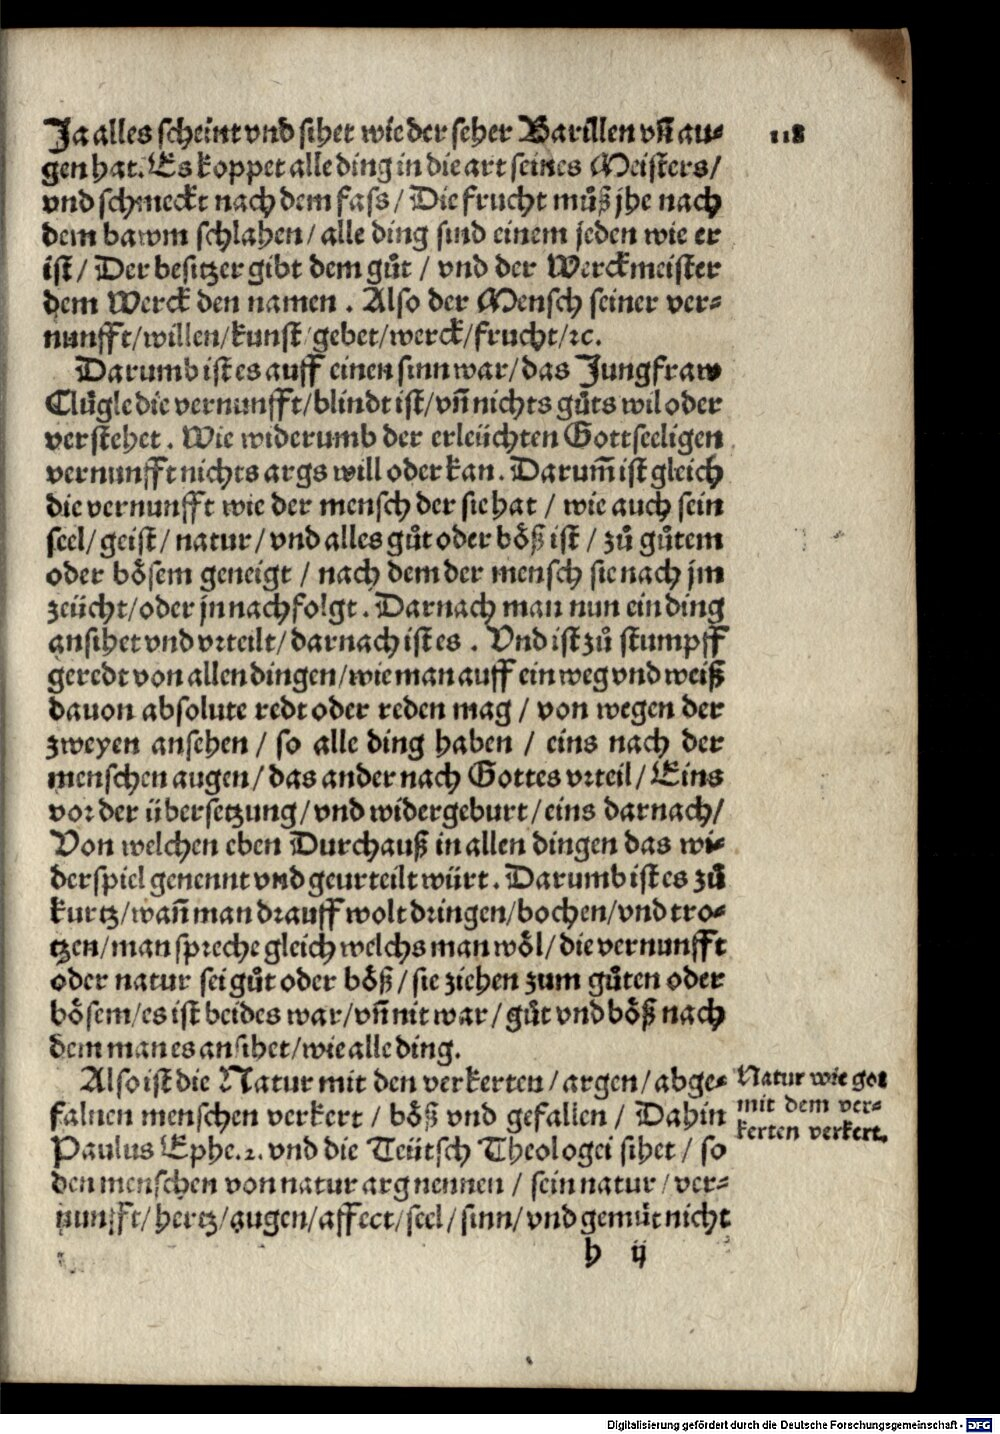 Ja alles scheint vnd sihet wie der seher Barillen vñ au-
118
gen hat. Es koppet alle ding in die art seines Meisters/
vnd schmeckt nach dem fass/ Die frucht můß jhe nach
dem bawm schlahen/ alle ding sind einem jeden wie er
ist/ Der besitzer gibt dem gůt/ vnd der Werckmeister
dem Werck den namen. Also der Mensch seiner ver-
nunfft/willen/kunst/gebet/werck/frucht/ꝛc.
Darumb ist es auff einen sinn war/das Jungfraw
Clůgle die vernunfft/blindt ist/vñ nichts gůts wil oder
verstehet. Wie widerumb der erleüchten Gottseeligen
vernunfft nichts args will oder kan. Darum̃ ist gleich
die vernunfft wie der mensch der sie hat/ wie auch sein
seel/ geist/ natur/ vnd alles gůt oder bo̊ß ist/ zů gůtem
oder bo̊sem geneigt/ nach dem der mensch sie nach jm
zeücht/oder jn nachfolgt. Darnach man nun ein ding
ansihet vnd vrteilt/ darnach ist es. Vnd ist zů stumpff
geredt von allen dingen/wie man auff ein weg vnd weiß
dauon absolute redt oder reden mag/ von wegen der
zweyen ansehen/ so alle ding haben/ eins nach der
menschen augen/ das ander nach Gottes vrteil/ Eins
vor der übersetzung/ vnd widergeburt/ eins darnach/
Von welchen eben Durchauß in allen dingen das wi-
derspiel genennt vnd geurteilt würt. Darumb ist es zů
kurtz/wañ man drauff wolt dringen/bochen/vnd tro-
tzen/man spreche gleich welchs man wo̊l/ die vernunfft
oder natur sei gůt oder bo̊ß/ sie ziehen zum gůten oder
bo̊sem/es ist beides war/vñ nit war/ gůt vnd bo̊ß nach
dem man es ansihet/wie alle ding.
Also ist die Natur mit den verkerten/ argen/ abge-
falnen menschen verkert/ bo̊ß vnd gefallen/ Dahin
Paulus Ephe.2. vnd die Teütsch Theologei sihet/ so
den menschen von natur arg nennen/ sein natur/ ver-
nunfft/ hertz/ augen/ affect/ seel/ sinn/ vnd gemůt nicht
Natur wie got
mit dem ver-
kerten verkert.
h ij
Digitalisierung gefördert durch die Deutsche Forschungsgemeinschaft - DFG